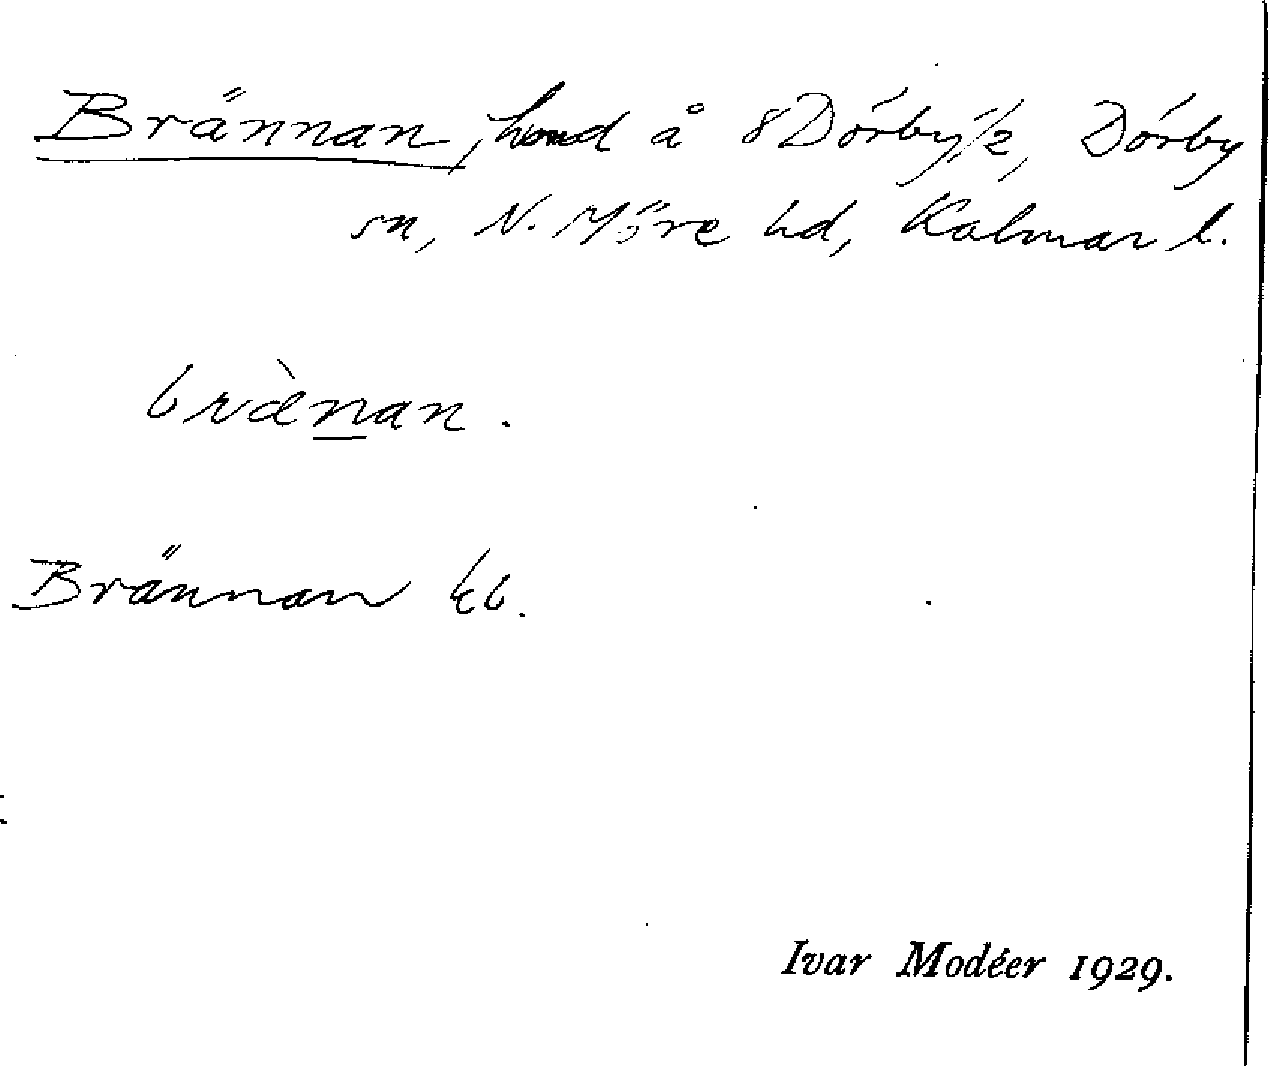 Brännan, hmd å 8 Dörby 1/2, Dörby
sn, N. Möre hd, Kalmar l.
bræ̀nan.
Brännan Ek.
Ivar Modéer 1929.